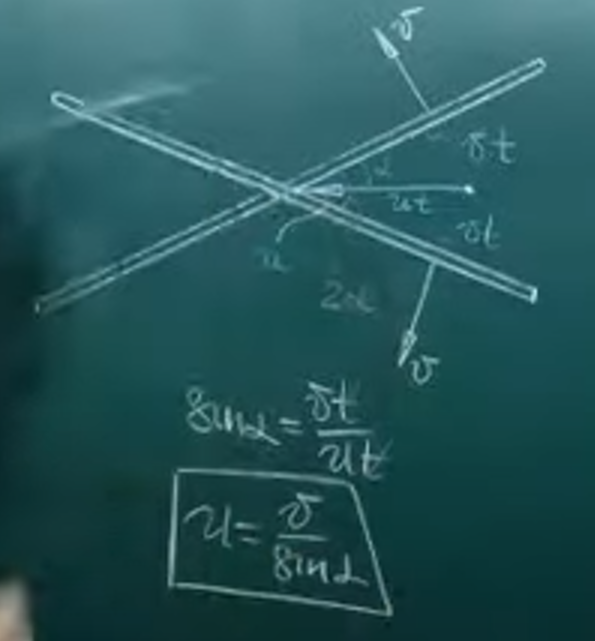 v
vt
α
ut
vt
u
2α
v
sinα = vt/ut
u = v/sinα